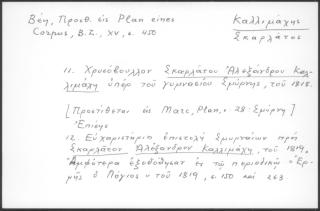 Βέη, Προσθ. εἰς Plan eines
Corpus, B.Z., XV, σ. 450
Καλλιμάχης
Σκαρλάτος
11. Χρυσόβουλλον Σκαρλάτου Ἀλεξάνδρου Καλ-
λιμάχη ὑπὲρ τοῦ γυμνασίου Σμύρνης, τοῦ 1818.
[Προστίθεται εἰς Marc, Plan, σ. 28· Σμύρνη]
Ἐπίσης
12. Εὐχαριστήριο ἐπιστολὴ Σμυρναίων πρὸς
Σκαρλάτον Ἀλεξάνδρου Καλλιμάχη, τοῦ 1819.
Ἀμφότερα ἐξεδόθησαν ἐν τῷ περιοδικῷ "Ἑρ-
μῆς ὁ Λόγιος" τοῦ 1819, σ. 150 καὶ 263